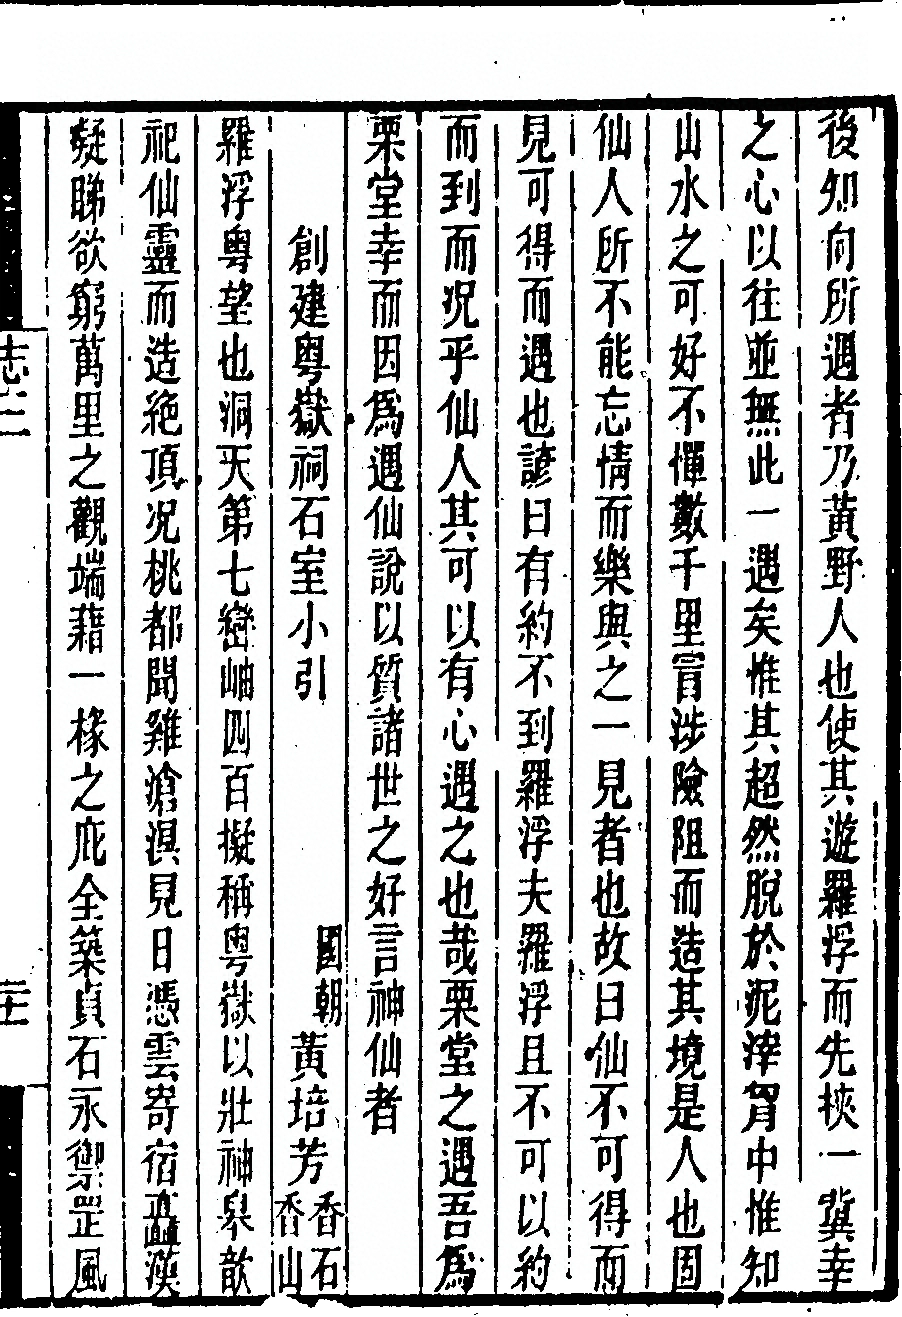 後知向所遇者乃黃野人也使其遊羅浮而先挾一冀幸
之心以往並無此一遇矣惟其超然脫於泥滓胷中惟知
山水之可好不憚數千里冒涉險阻而造其境是人也固
仙人所不能忘情而樂與之一見者也故曰仙不可得而
見可得而遇也諺曰有約不到羅浮夫羅浮且不可以約
而到而况乎仙人其可以有心遇之也哉栗堂之遇吾為
栗堂幸而因為遇仙說以質諸世之好言神仙者
創建粵嶽祠石室小引
國朝黃培芳香石香山
羅浮粵望也洞天第七巒岫四百擬稱粵嶽以壯神皋歆
祀仙靈而造絶頂况桃都聞雞滄溟見日憑雲寄宿矗漢
凝睇欲窮萬里之觀端藉一椽之庇全築貞石永禦罡風
志二
二十一